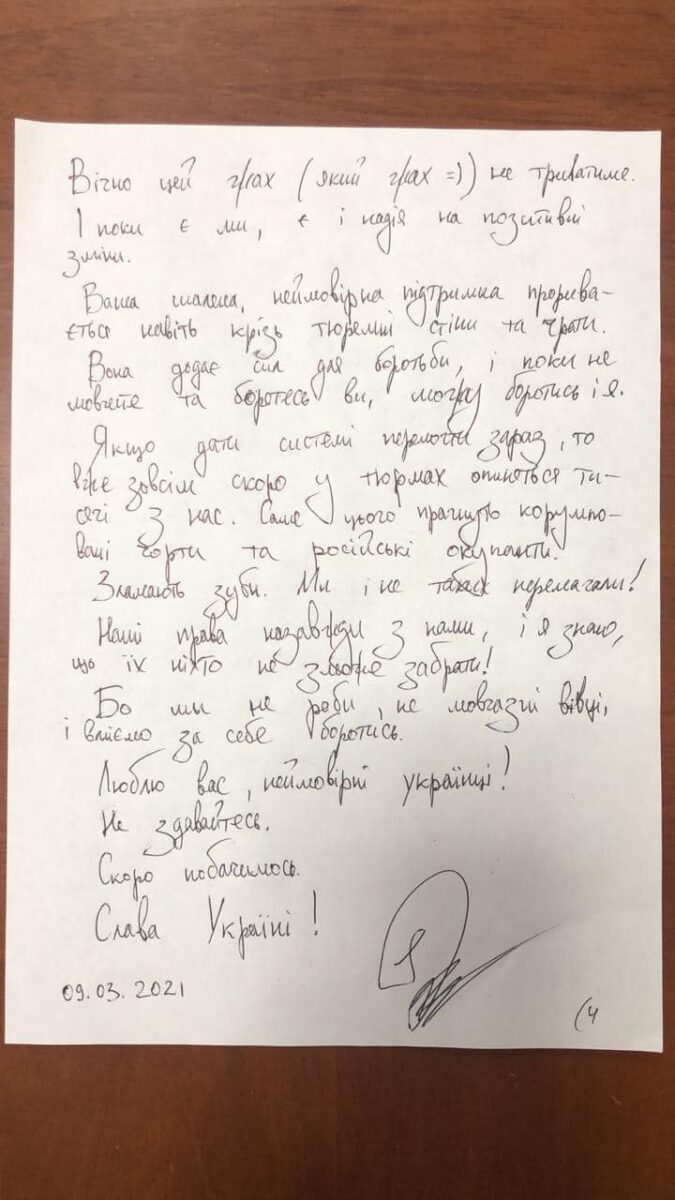 Вічно цей жах (який жах =)) не триватиме.
І поки є ми, є і надія на позитивні
зміни.
Ваша шалена, неймовірна підтримка прорива-
ється навіть крізь тюремні стіни та ґрати.
Вона додає сил для боротьби, і поки не
мовчите та боретесь ви, можу боротись і я.
Якщо дати системі перемогти зараз, то
вже зовсім скоро у тюрмах опиняться ти-
сячі з нас. Саме цього прагнуть корумпо-
вані чорти та російські окупанти.
Зламають зуби. Ми і не таких перемагали!
Наші права назавжди з нами, і я знаю,
що їх ніхто не зможе забрати!
Бо мы не раби, не мовчазні вівці,
і вміємо за себе боротись.
Люблю вас, неймовірні українці!
Не здавайтесь.
Скоро побачимось.
Слава Україні!
09.03.2021
(4